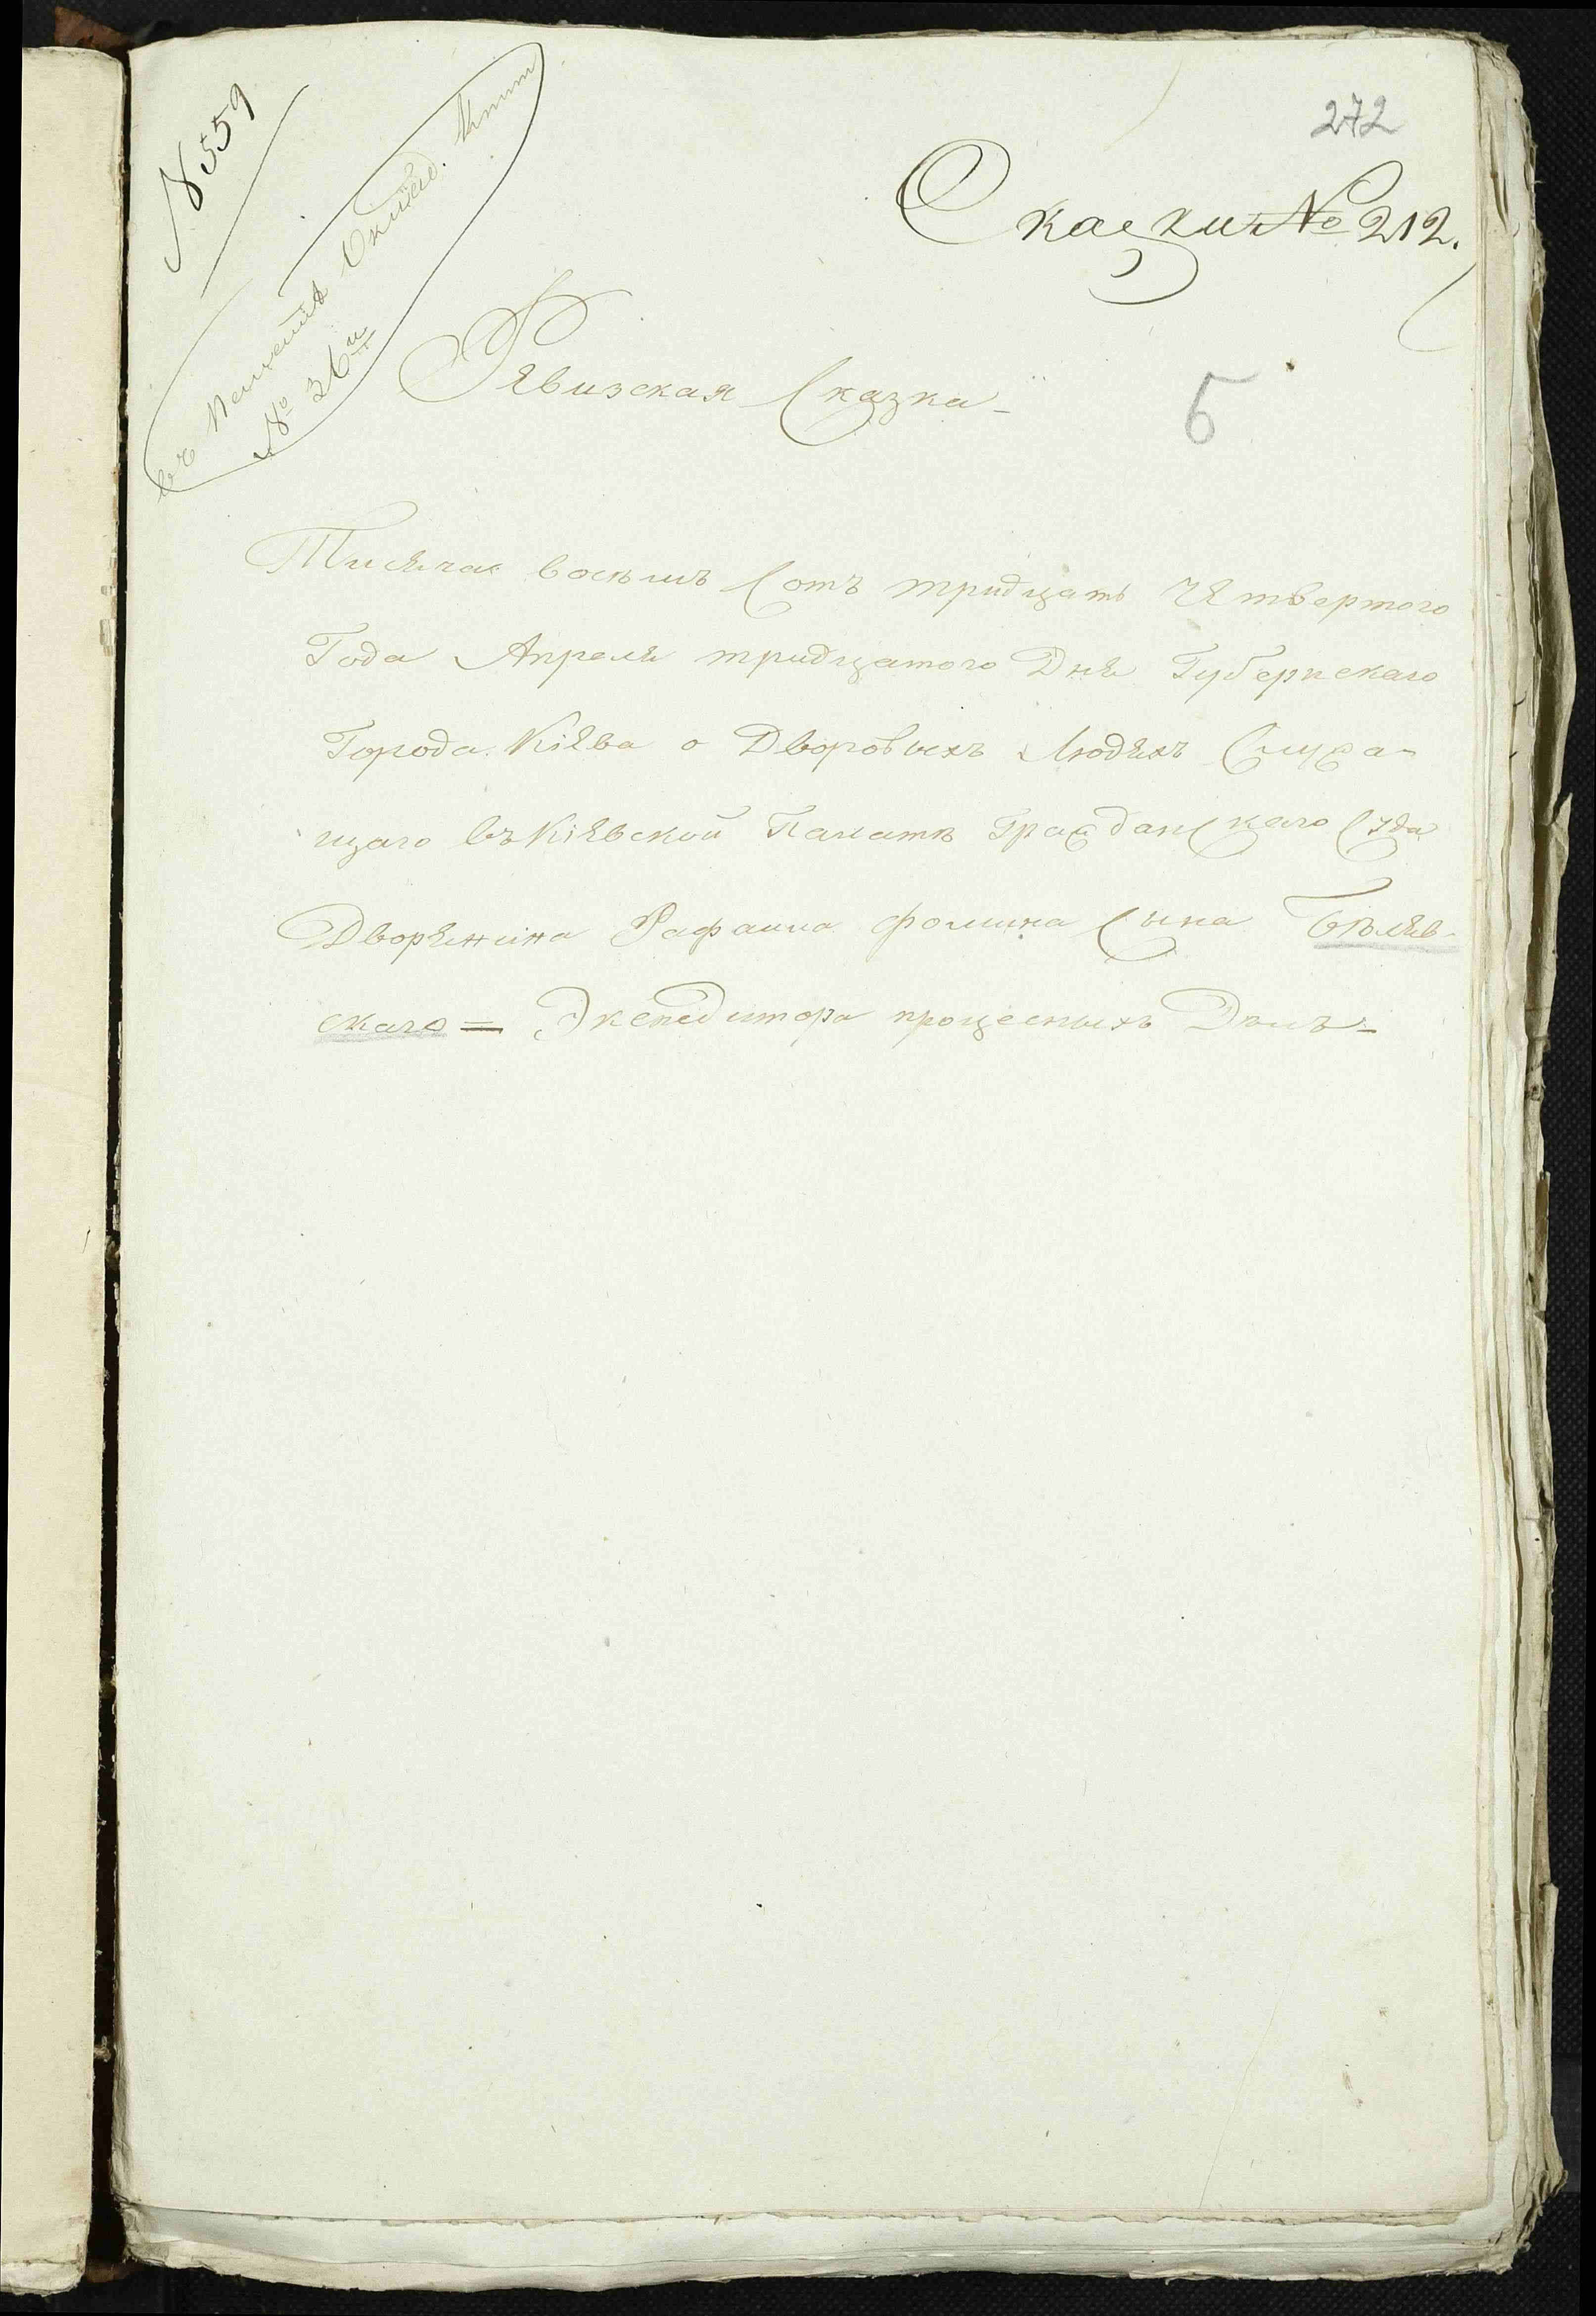 272
№ 559
Сказки № 212.
въ
№ 36й
Ревизская Сказка
5
Тисяча восьмъ Сотъ тридцать Четвертого
Года Апреля тридцатого Дня Губернскаго
Города Кіева о Дворовыхъ Людяхъ Служа-
щаго въ Кіевской Палатѣ Гражданскаго Суда
Дворянина Рафаила Фомина Сына Бѣляв-
скаго = Экспедитора процесныхъ Дѣлъ